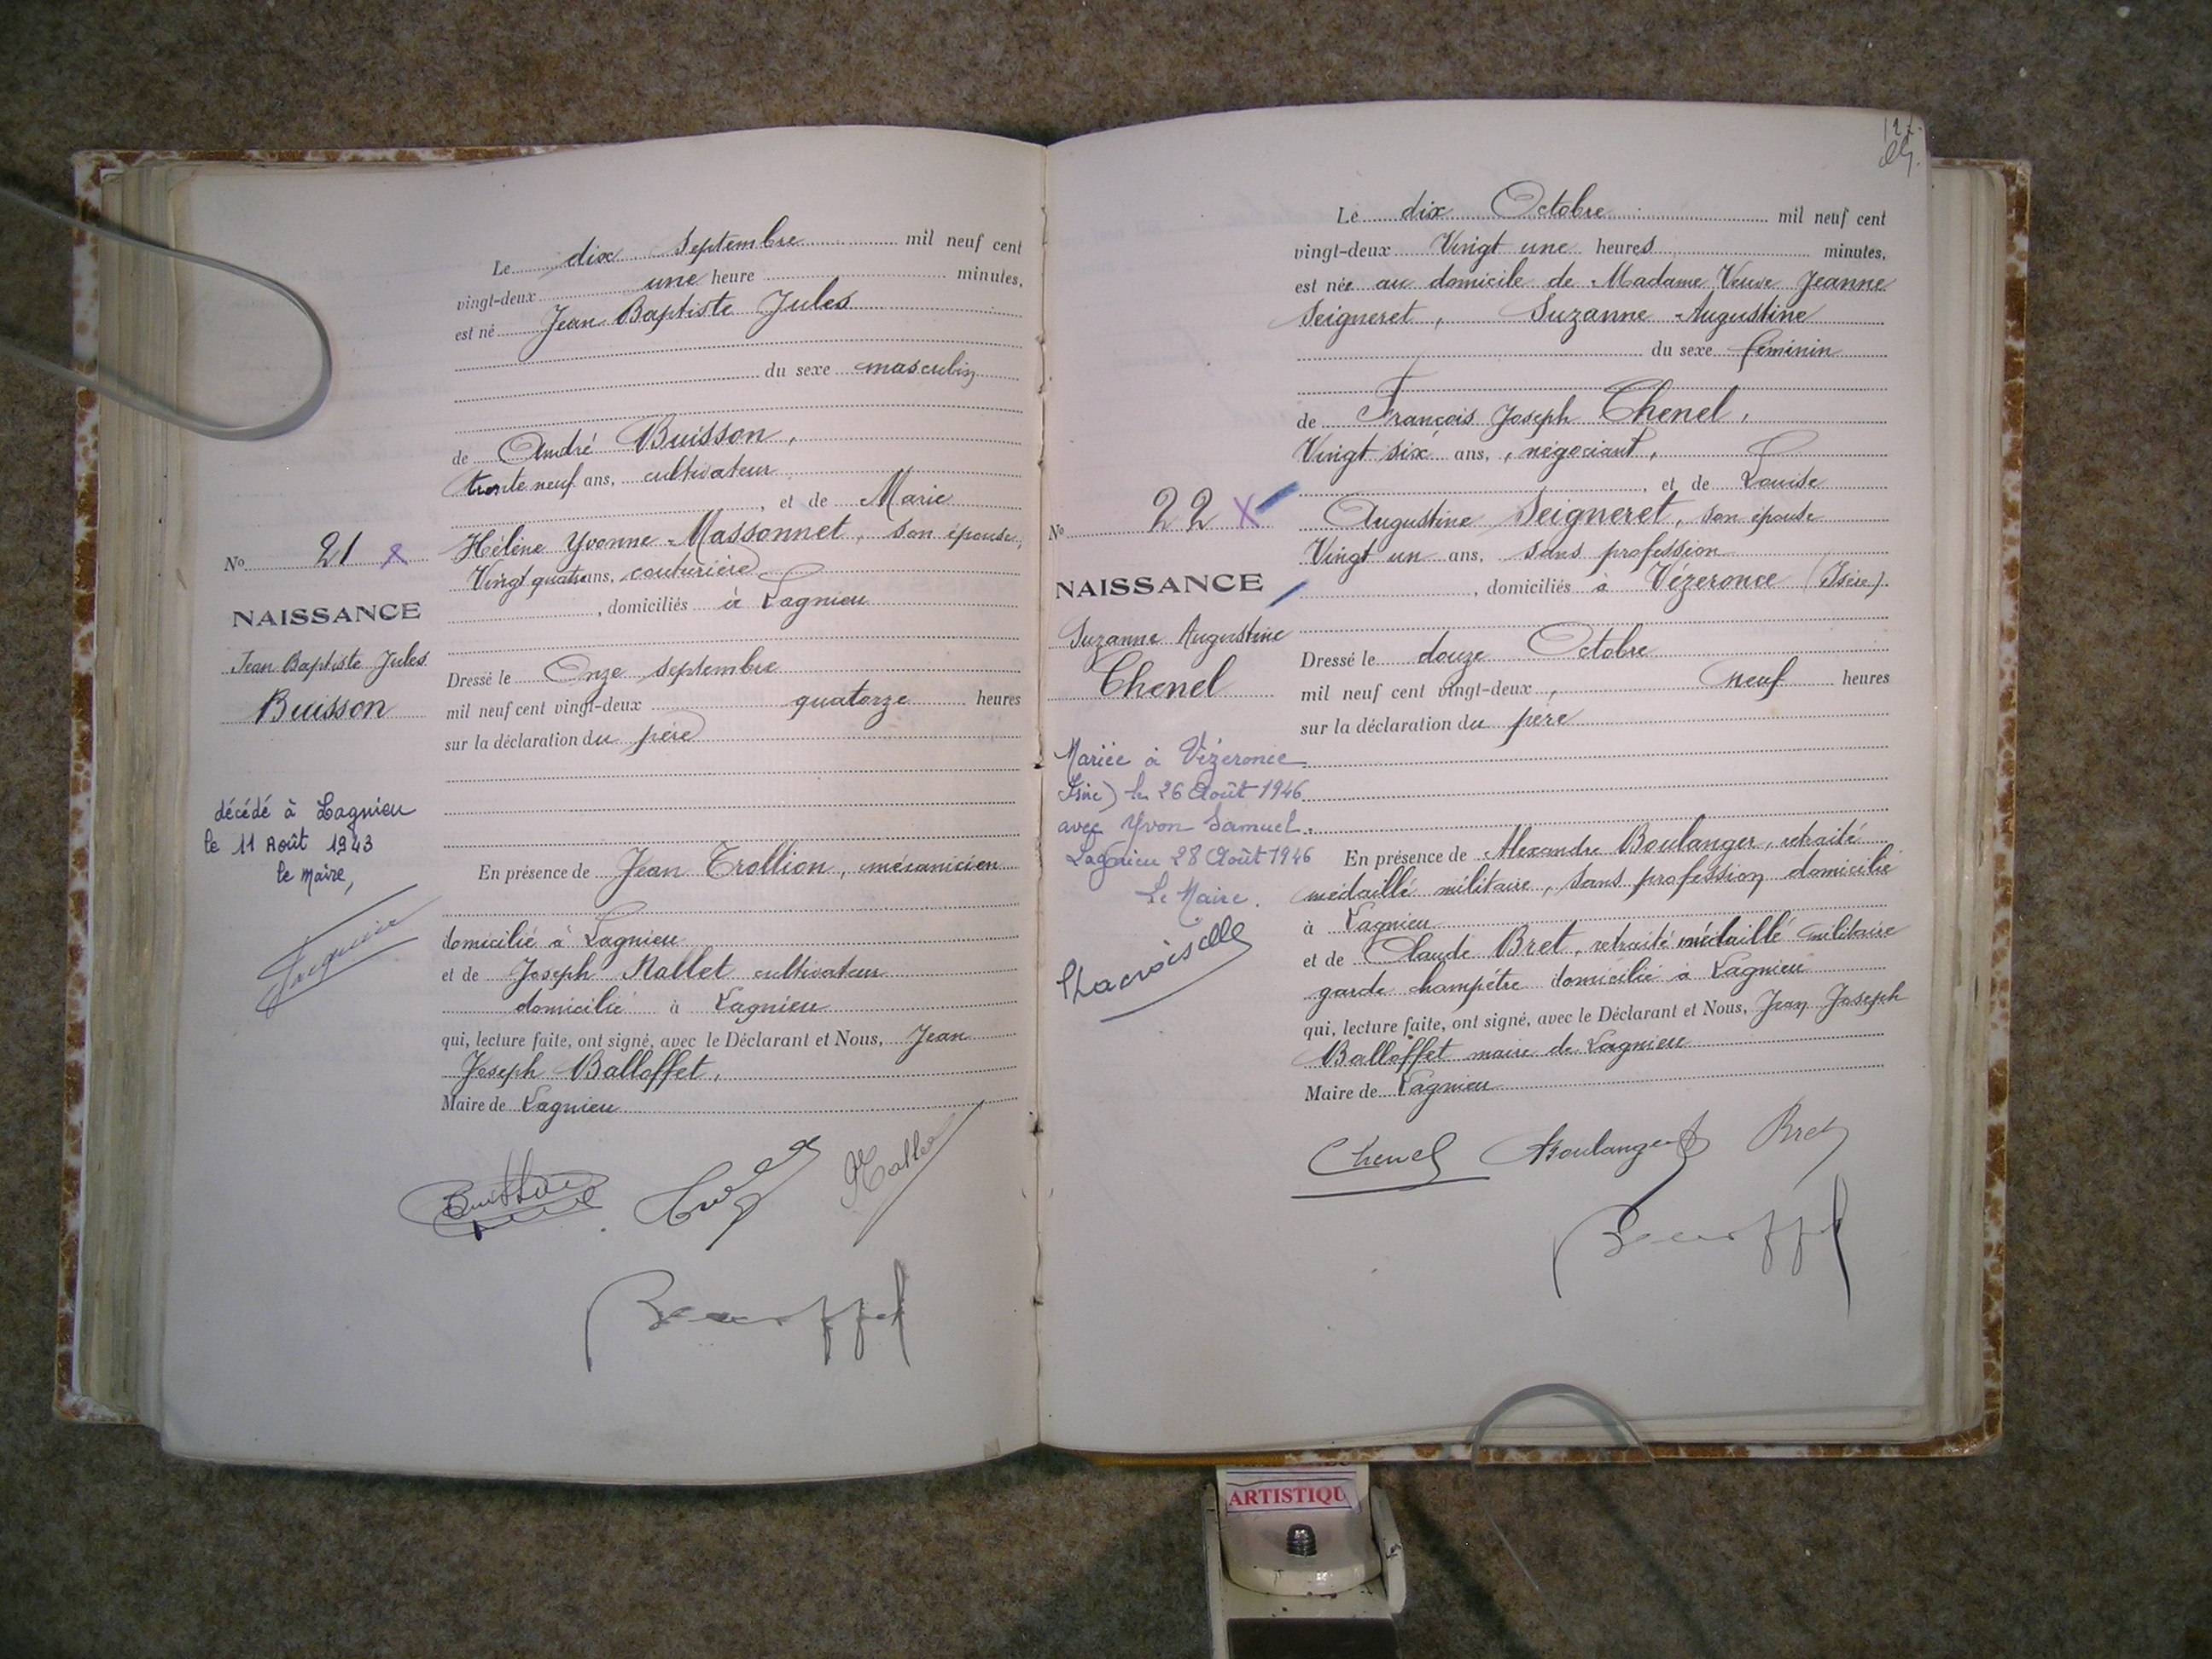 Le dix Septembre mil neuf cent
vingt-deux une heure minutes,
est né Jean Baptiste Jules
du sexe masculin
de André Buisson,
trente neuf ans, cultivateur
, et de Marie
Hélène Yvonne Massonnet, son épouse,
Vingt quatre ans, couturière
, domiciliés à Lagnieu
Dressé le Onze septembre
mil neuf cent vingt-deux quatorze heures
sur la déclaration du père
En présence de Jean Trollion, mécanicien
domicilié à Lagnieu
et de Joseph Mallet cultivateur
domicilié à Lagnieu
qui, lecture faite, ont signé, avec le Déclarant et Nous, Jean
Joseph Balloffet,
Maire de Lagnieu
No 21
NAISSANCE
Jean Baptiste Jules
Buisson
décédé à Lagnieu
le 11 Août 1943
le Maire,
Le dix Octobre mil neuf cent
vingt-deux Vingt une heures minutes,
est née au domicile de Madame Veuve Jeanne
Seigneret, Suzanne Augustine
du sexe féminin
de François Joseph Chenel,
Vingt six ans, négociant,
, et de Louise
Augustine Seigneret, son épouse
Vingt un ans, sans profession
, domiciliés à Vézeronce (Isère).
Dressé le douze Octobre
mil neuf cent vingt-deux, neuf heures
sur la déclaration du père
En présence de Alexandre Boulanger, retraité
médaillé militaire, sans profession domicilié
à Lagnieu
et de Claude Bret, retraité médaillé militaire
garde champêtre domicilié à Lagnieu
qui, lecture faite, ont signé, avec le Déclarant et Nous, Jean Joseph
Balloffet maire de Lagnieu
Maire de Lagnieu
Chenel Boulanger Bret
No 22 X
NAISSANCE
Suzanne Augustine
Chenel
Mariée à Vézeronce
Isère) le 26 Août 1946
avec Yvon Samuel.
Lagnieu 28 Août 1946
Le Maire.
ARTISTIQU